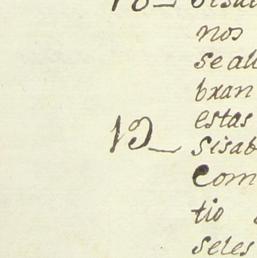 nos
bran
estas
19_ Sisab
Com
tio
seles